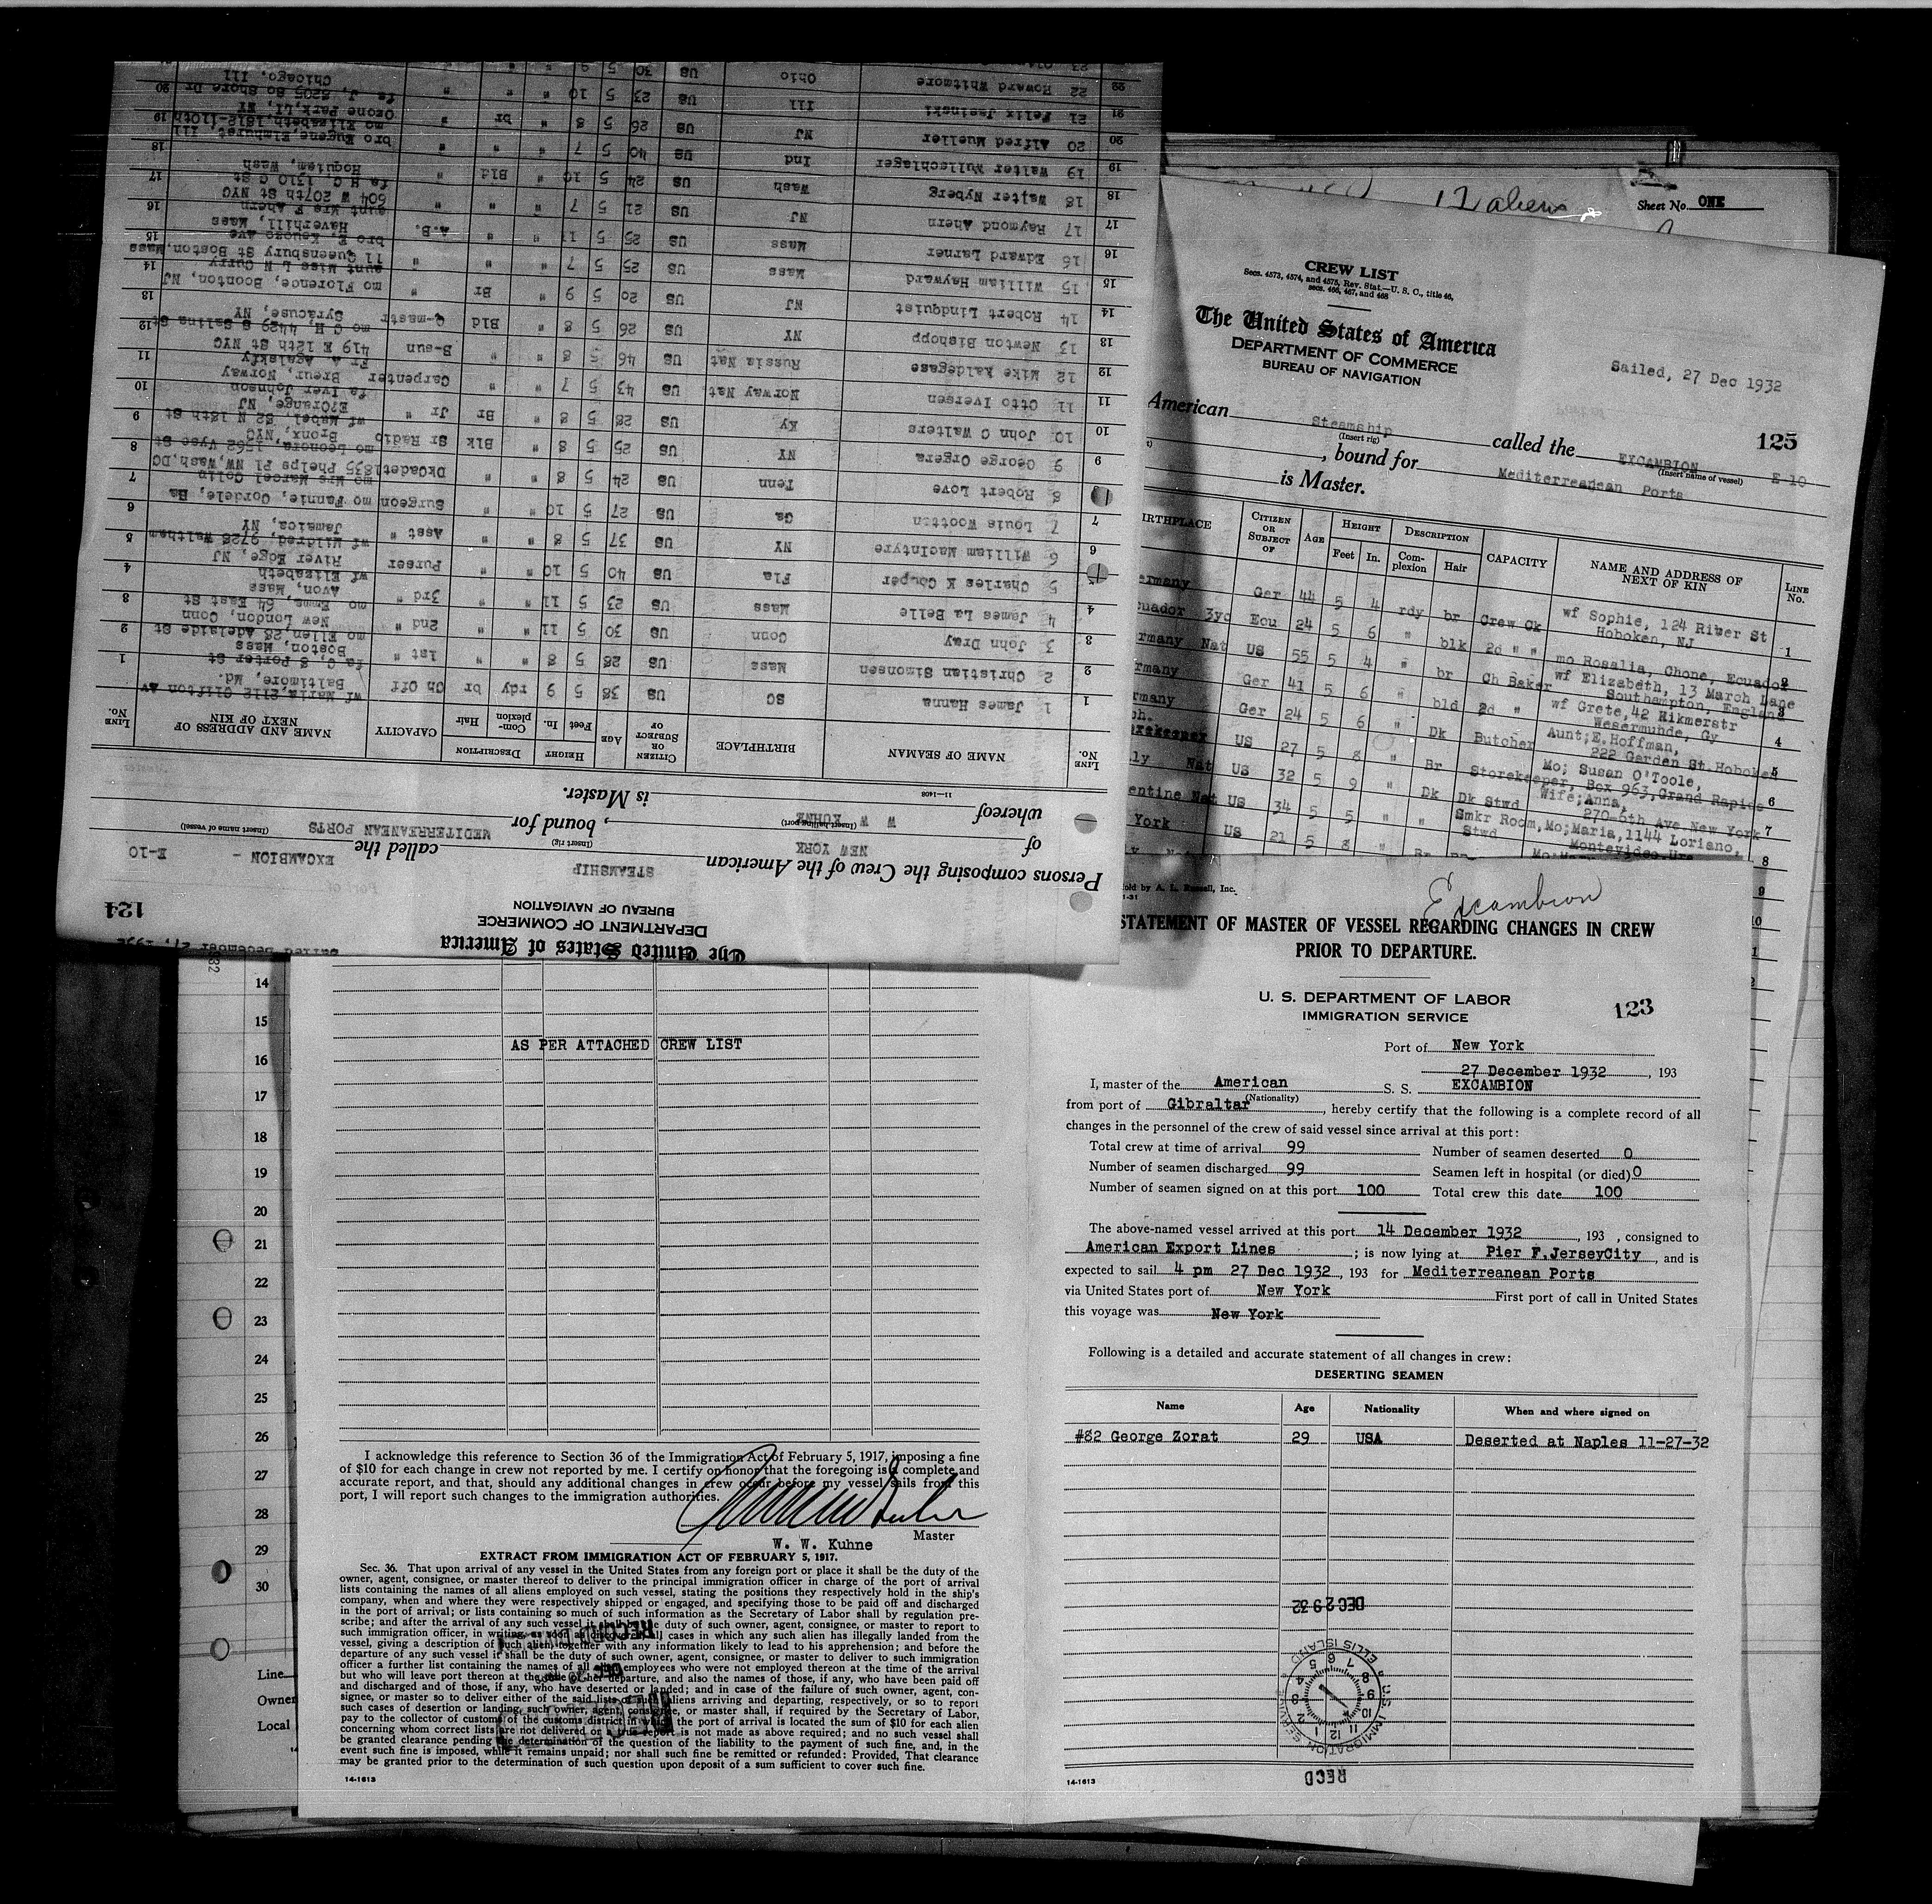 12 aliens
Sheet No. ONE
CREW LIST
Secs. 4573, 4574, and 4575, Rev. Stat.—U. S. C., title 46,
secs. 466, 467, and 468
The United States of America
DEPARTMENT OF COMMERCE
BUREAU OF NAVIGATION
Sailed, 27 Dec 1932
125
American Steamship called the EXCAMBION E-10
(Insert rig) (Insert name of vessel)
, bound for Mediterreanean Ports
is Master.
BIRTHPLACE CITIZEN OR SUBJECT OF AGE HEIGHT Feet In. DESCRIPTION Complexion Hair CAPACITY NAME AND ADDRESS OF NEXT OF KIN LINE No.
ermany Ger 44 5 4 rdy br Crew Ck wf Sophie, 124 River St Hoboken, NJ 1
cuador 3yo Ecu 24 5 6 " blk 2d " " mo Rosalia, Chone, Ecuador 2
rmany Nat US 55 5 4 " br Ch Baker wf Elizabeth, 13 March Lane Southampton, England 3
rmany Ger 41 5 6 " bld 2d " wf Grete, 42 Rikmerstr Wesermunde, Gy 4
rmany Ger 24 5 6 " Dk Butcher Aunt; E.Hoffman, 222 Garden St. Hoboken 5
US 27 5 8 " Br Storekeeper, Mo; Susan O'Toole, Box 963, Grand Rapids 6
ly Nat US 32 5 9 " Dk Dk Stwd Wife; Anna, 270-6th Ave. New York 7
entine Nat US 34 5 5 " " Smkr Room, Stwd Mo; Maria, 1144 Loriano, Montevideo, Uru 8
York US 21 5 8
The United States of America
DEPARTMENT OF COMMERCE
BUREAU OF NAVIGATION
124
Persons composing the Crew of the American STEAMSHIP called the EXCAMBION - E-10
(Insert rig) (Insert name of vessel)
of NEW YORK , bound for MEDITERREANEAN PORTS
(Insert hailing port)
whereof W W KUHNE is Master.
11—1408
LINE No. NAME OF SEAMAN BIRTHPLACE CITIZEN OR SUBJECT OF AGE HEIGHT Feet In. DESCRIPTION Complexion Hair CAPACITY NAME AND ADDRESS OF NEXT OF KIN LINE No.
1 James Hanna SC US 38 5 9 rdy br Ch Off wf Maria, 2112 Clifton Av Baltimore, Md. 1
2 Christian Simonsen Mass US 28 5 8 " " 1st " fa C, 8 Porter St Boston, Mass 2
3 John Dray Conn US 30 5 11 " " 2nd " mo Ellen, 28 Adelaide St New London, Conn 3
4 James La Belle Mass US 23 5 11 " " 3rd " mo Emma, 64 East St Avon, Mass 4
5 Charles K Couper Fla US 40 5 10 " " Purser wf Elizabeth River Edge, NJ
6 William MacIntyre NY US 37 5 8 " " Asst " wf Mildred, 9728 Waltham Jamaica, NY
7 Louis Wootton Ga US 27 5 10 " " Surgeon mo Fannie, Cordele, Ga
8 Robert Love Tenn US 24 5 8 " " DkCadet mo Mrs Marcel Colin 1835 Phelps Pl NW, Wash, DC
9 George Orgera NY US 25 5 8 " Blk Sr Radio mo Leonora, 1562 Vyse St Bronx, NYC
10 John C Walters Ky US 28 5 8 " Br Jr " wf Mabel, 82 N 18th St E?Orange, NJ
11 Otto Iversen Norway Nat US 43 5 7 " " Carpenter fa Iver Johnson Breur, Norway
12 Mike Kaldegase Russia Nat US 46 5 8 " " B-sun 419 E 12th St NYC
13 Newton Bishopp NY US 26 5 8 " Bld Q-mastr mo C H, 4429 S Salina St Syracuse, NY
14 Robert Lindquist NJ US 20 5 9 " Br " mo Florence, Boonton, NJ
15 William Hayward Mass US 25 5 7 " " " aunt Miss L N Curry 11 Queensbury St Boston, Mass
16 Edward Larner Mass US 25 5 11 " " A.B. bro E, Kenozo Ave Haverhill, Mass
17 Raymond Ahern NJ US 21 5 7 " " " aunt Mrs F Ahern 604 W 207th St NYC
18 Walter Nyberg Wash US 24 5 10 " Bld " fa H G, 1310 C St Hoquiam, Wash
19 Walter Wullschlager Ind US 40 5 7 " " " bro Eugene, Elmhurst, Ill
20 Alfred Mueller NJ US 26 5 8 " br " mo Elizabeth, 1812-110th Ozone Park, LI, NY
21 Felix Jasinski Ill US 23 5 10 " " " fa J, 8205 So Shore Dr Chicago, Ill
22 Howard Whitmore Ohio US 30 5 9
14
15
16
17
18
19
20
21
22
23
24
25
26
27
28
29
30
Line
Owner
Local
AS PER ATTACHED CREW LIST
I acknowledge this reference to Section 36 of the Immigration Act of February 5, 1917, imposing a fine
of $10 for each change in crew not reported by me. I certify on honor that the foregoing is a complete and
accurate report, and that, should any additional changes in crew occur before my vessel sails from this
port, I will report such changes to the immigration authorities.
Master
W. W. Kuhne
EXTRACT FROM IMMIGRATION ACT OF FEBRUARY 5, 1917.
Sec. 36. That upon arrival of any vessel in the United States from any foreign port or place it shall be the duty of the
owner, agent, consignee, or master thereof to deliver to the principal immigration officer in charge of the port of arrival
lists containing the names of all aliens employed on such vessel, stating the positions they respectively hold in the ship's
company, when and where they were respectively shipped or engaged, and specifying those to be paid off and discharged
in the port of arrival; or lists containing so much of such information as the Secretary of Labor shall by regulation pre-
scribe; and after the arrival of any such vessel it shall be the duty of such owner, agent, consignee, or master to report to
such immigration officer, in writing, as soon as discovered, all cases in which any such alien has illegally landed from the
vessel, giving a description of such alien, together with any information likely to lead to his apprehension; and before the
departure of any such vessel it shall be the duty of such owner, agent, consignee, or master to deliver to such immigration
officer a further list containing the names of all alien employees who were not employed thereon at the time of the arrival
but who will leave port thereon at the time of her departure, and also the names of those, if any, who have been paid off
and discharged and of those, if any, who have deserted or landed; and in case of the failure of such owner, agent, con-
signee, or master so to deliver either of the said lists of such aliens arriving and departing, respectively, or so to report
such cases of desertion or landing, such owner, agent, consignee, or master shall, if required by the Secretary of Labor,
pay to the collector of customs of the customs district in which the port of arrival is located the sum of $10 for each alien
concerning whom correct lists are not delivered or a true report is not made as above required; and no such vessel shall
be granted clearance pending the determination of the question of the liability to the payment of such fine, and, in the
event such fine is imposed, while it remains unpaid; nor shall such fine be remitted or refunded: Provided, That clearance
may be granted prior to the determination of such question upon deposit of a sum sufficient to cover such fine.
14-1613
Sold by A. L. Russell, Inc.
1-31
Excambion
STATEMENT OF MASTER OF VESSEL REGARDING CHANGES IN CREW
PRIOR TO DEPARTURE.
U. S. DEPARTMENT OF LABOR
IMMIGRATION SERVICE
123
Port of New York
27 December 1932, 193
I, master of the American S. S. EXCAMBION
(Nationality)
from port of Gibraltar, hereby certify that the following is a complete record of all
changes in the personnel of the crew of said vessel since arrival at this port:
Total crew at time of arrival 99 Number of seamen deserted 0
Number of seamen discharged 99 Seamen left in hospital (or died) 0
Number of seamen signed on at this port 100 Total crew this date 100
The above-named vessel arrived at this port 14 December 1932, 193 , consigned to
American Export Lines ; is now lying at Pier F.JerseyCity, and is
expected to sail 4 pm 27 Dec 1932, 193 for Mediterreanean Ports
via United States port of New York First port of call in United States
this voyage was New York
Following is a detailed and accurate statement of all changes in crew:
DESERTING SEAMEN
Name Age Nationality When and where signed on
#82 George Zorat 29 USA Deserted at Naples 11-27-32
DEC 29 32
U.S. IMMIGRATION SERVICE ELLIS ISLAND
REC'D
14-1613